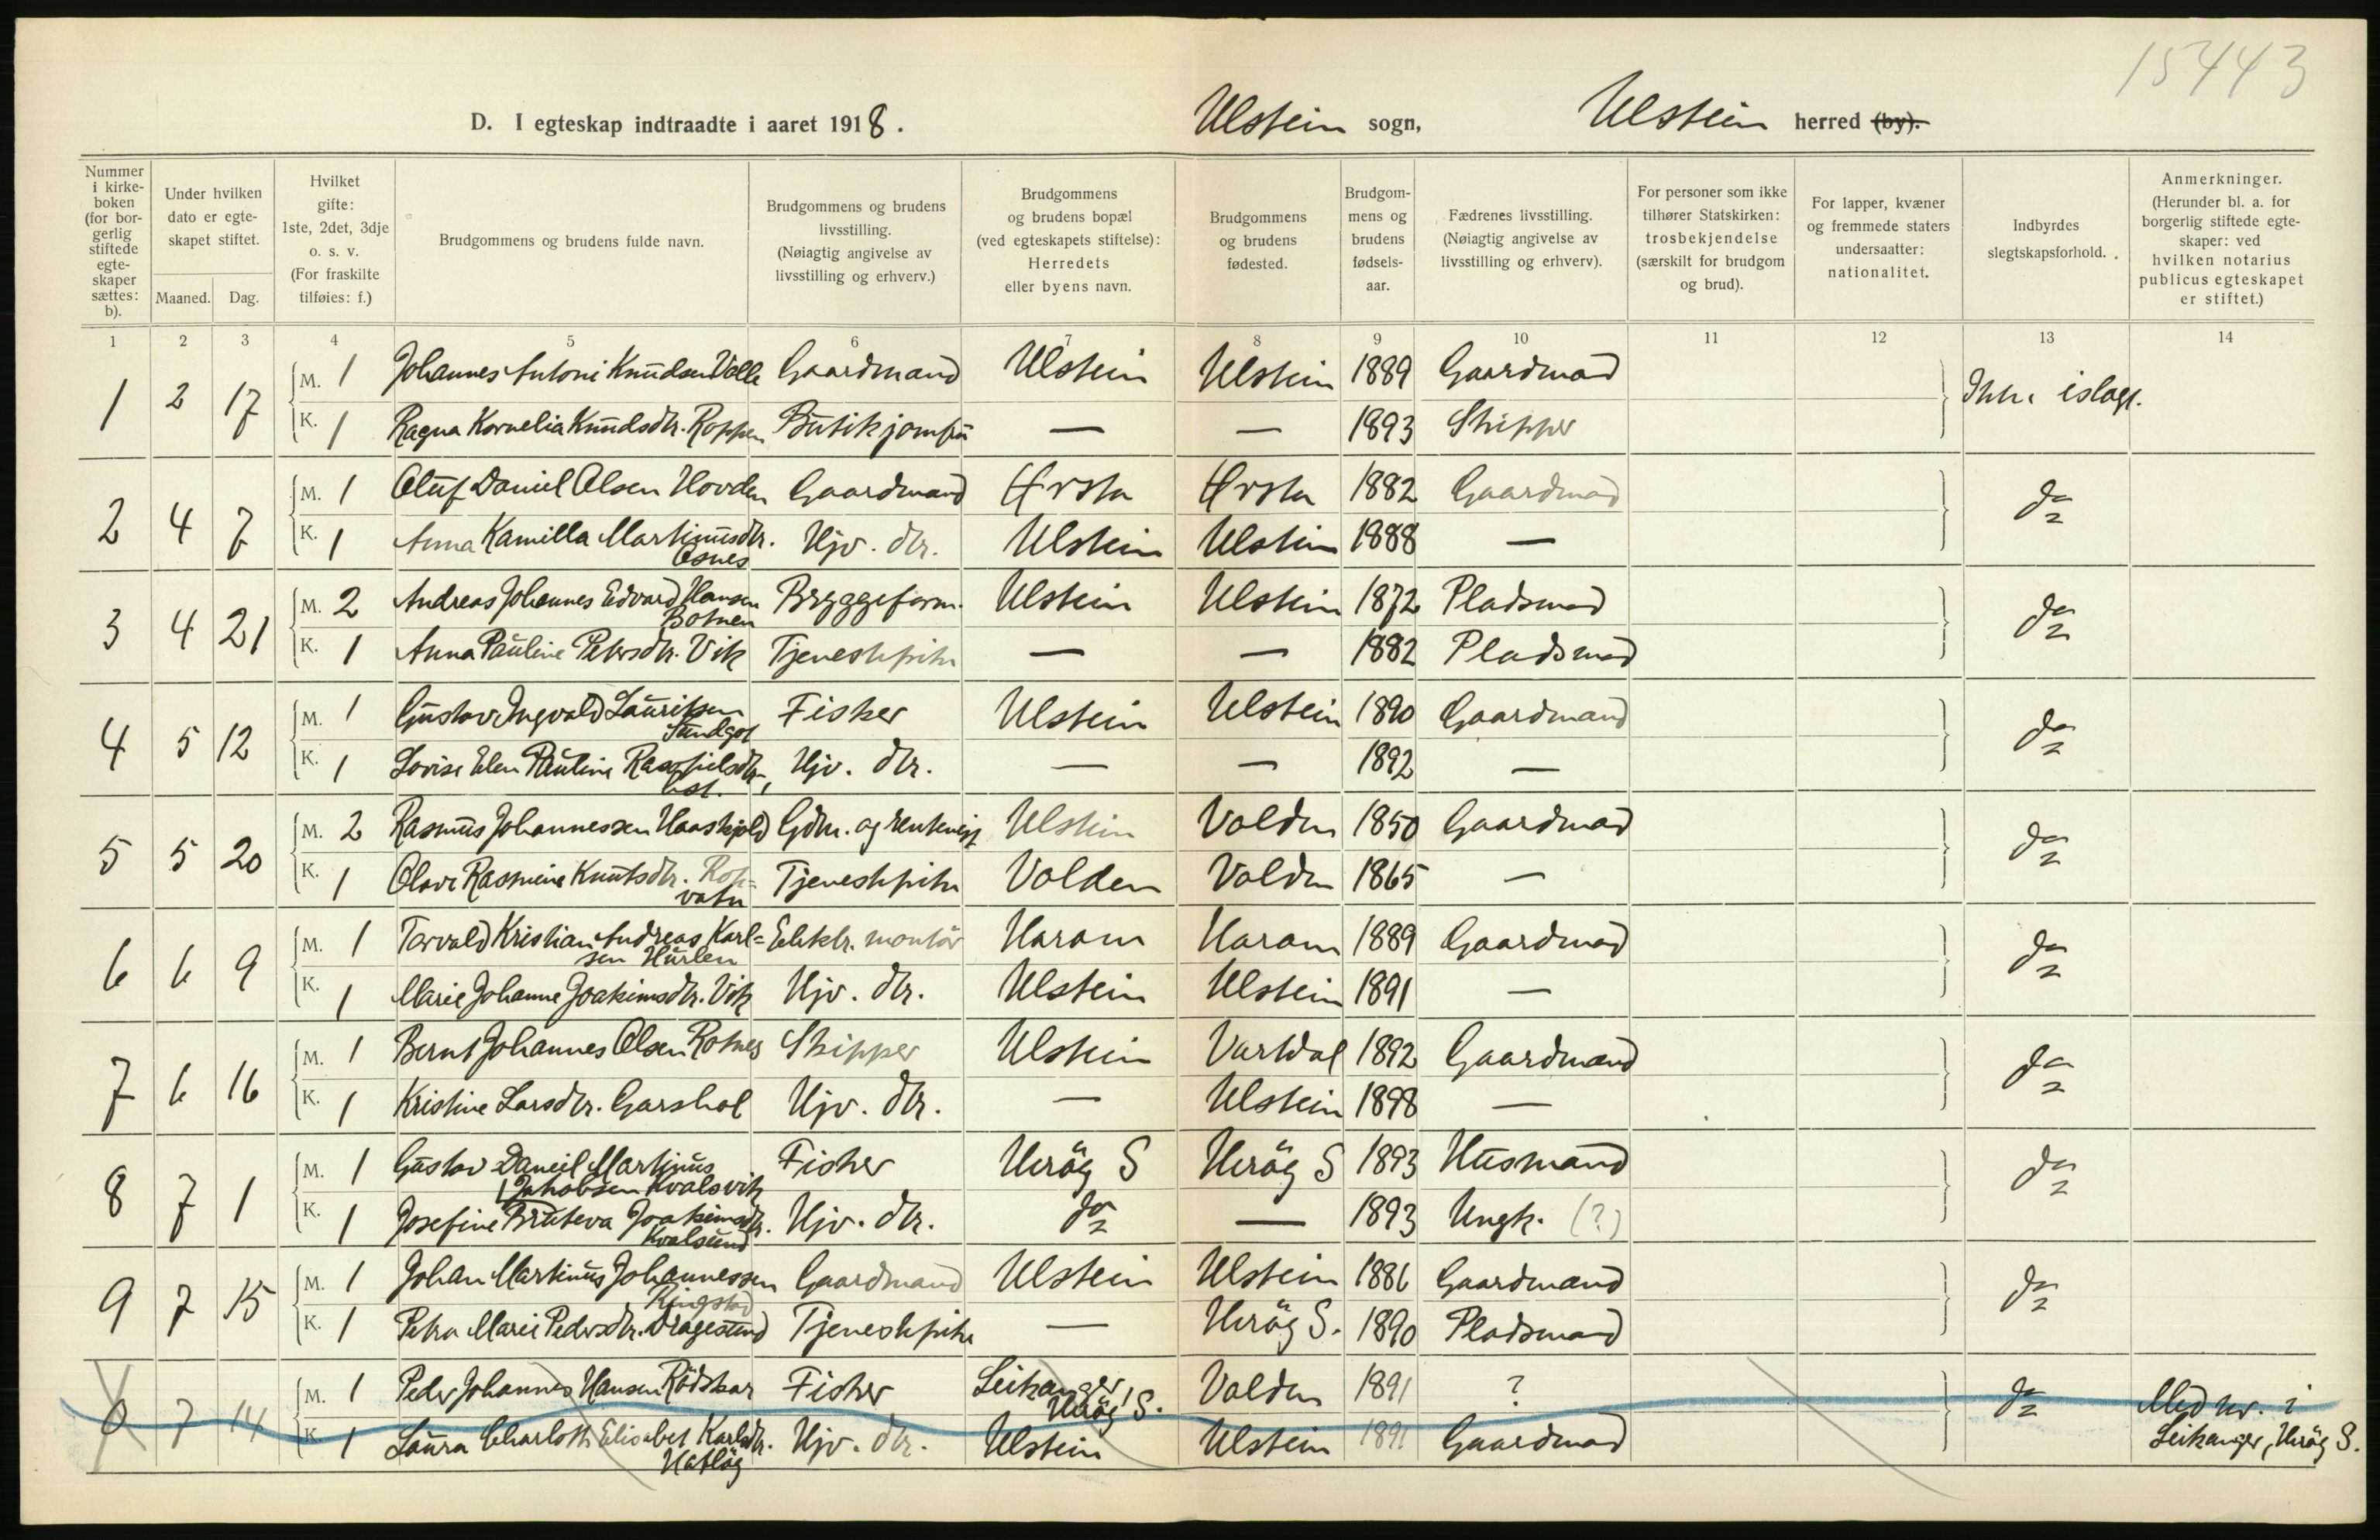 15443
D. I egteskap indtraadte i aaret 1918. Ulstein sogn, Ulstein herred (by).
Nummer i kirkeboken (for borgerlig stiftede egteskaper sættes: b).
Under hvilken dato er egteskapet stiftet.
Maaned. Dag.
Hvilket gifte: 1ste, 2det, 3dje o. s. v. (For fraskilte tilføies: f.)
Brudgommens og brudens fulde navn.
Brudgommens og brudens livsstilling. (Nøiagtig angivelse av livsstilling og erhverv.)
Brudgommens og brudens bopæl (ved egteskapets stiftelse): Herredets eller byens navn.
Brudgommens og brudens fødested.
Brudgommens og brudens fødselsaar.
Fædrenes livsstilling. (Nøiagtig angivelse av livsstilling og erhverv).
For personer som ikke tilhører Statskirken: trosbekjendelse (særskilt for brudgom og brud).
For lapper, kvæner og fremmede staters undersaatter: nationalitet.
Indbyrdes slegtskapsforhold.
Anmerkninger. (Herunder bl. a. for borgerlig stiftede egteskaper: ved hvilken notarius publicus egteskapet er stiftet.)
1 2 3 4 5 6 7 8 9 10 11 12 13 14
1 2 17 M. 1 Johannes Antoni Knudsen Valle Gaardmand Ulstein Ulstein 1889 Gaardmand
K. 1 Ragna Kornelia Knudsdtr. Roppen Butikjomfru — — 1893 Skipper
2 4 7 M. 1 Oluf Daniel Olsen Hovden Gaardmand Ørsta Ørsta 1882 Gaardmand do
K. 1 Anna Kamilla Martinusdtr. Osnes Hjv. dtr. Ulstein Ulstein 1888 —
3 4 21 M. 2 Andreas Johannes Edvard Hansen Botnen Bryggeform. Ulstein Ulstein 1872 Pladsmand do
K. 1 Anna Pauline Petersdtr. Vik Tjenestepike — — 1882 Pladsmand
4 5 12 M. 1 Gustav Ingvald Lauritsen Sundgot Fisker Ulstein Ulstein 1890 Gaardmand do
K. 1 Lovise Elen Pauline Hjv. dtr. — — 1892 —
5 5 20 M. 2 Rasmus Johannessen Haaskjold Gdm. og Ulstein Volden 1850 Gaardmand do
K. 1 Olave Rasmine Knutsdtr. Tjenestepike Volden Volden 1865 —
6 6 9 M. 1 Torvald Kristian Andreas Karlsen Hurlen Elektr. montör Haram Haram 1889 Gaardmand do
K. 1 Marie Johanne Joakimsdtr. Vik Hjv. dtr. Ulstein Ulstein 1891 —
7 6 16 M. 1 Bernt Johannes Olsen Rotnes Skipper Ulstein Vartdal 1892 Gaardmand do
K. 1 Kristine Larsdtr. Garshol Hjv. dtr. — Ulstein 1898 —
8 7 1 M. 1 Gustav Daneil Martinus Jakobsen Kvalsvik Fisker Heröy S Heröy S 1893 Husmand do
K. 1 Josefine Joakimsdtr. Kvalsund Hjv. dtr. do — 1893 Ungk. (?)
9 7 15 M. 1 Johan Martinus Johannessen Ringstad Gaardmand Ulstein Ulstein 1886 Gaardmand do
K. 1 Petra Marie Pedersdtr. Dragesund Tjenestepike — Heröy S. 1890 Pladsmand
0 7 14 M. 1 Peder Johannes Hansen Rödskar Fisker Leikanger, Heröy S. Volden 1891 ? do Med nr. i Leikanger, Heröy S.
K. 1 Laura Charlotte Elisabet Karlsdtr. Hatløy Hjv. dtr. Ulstein Ulstein 1891 Gaardmand